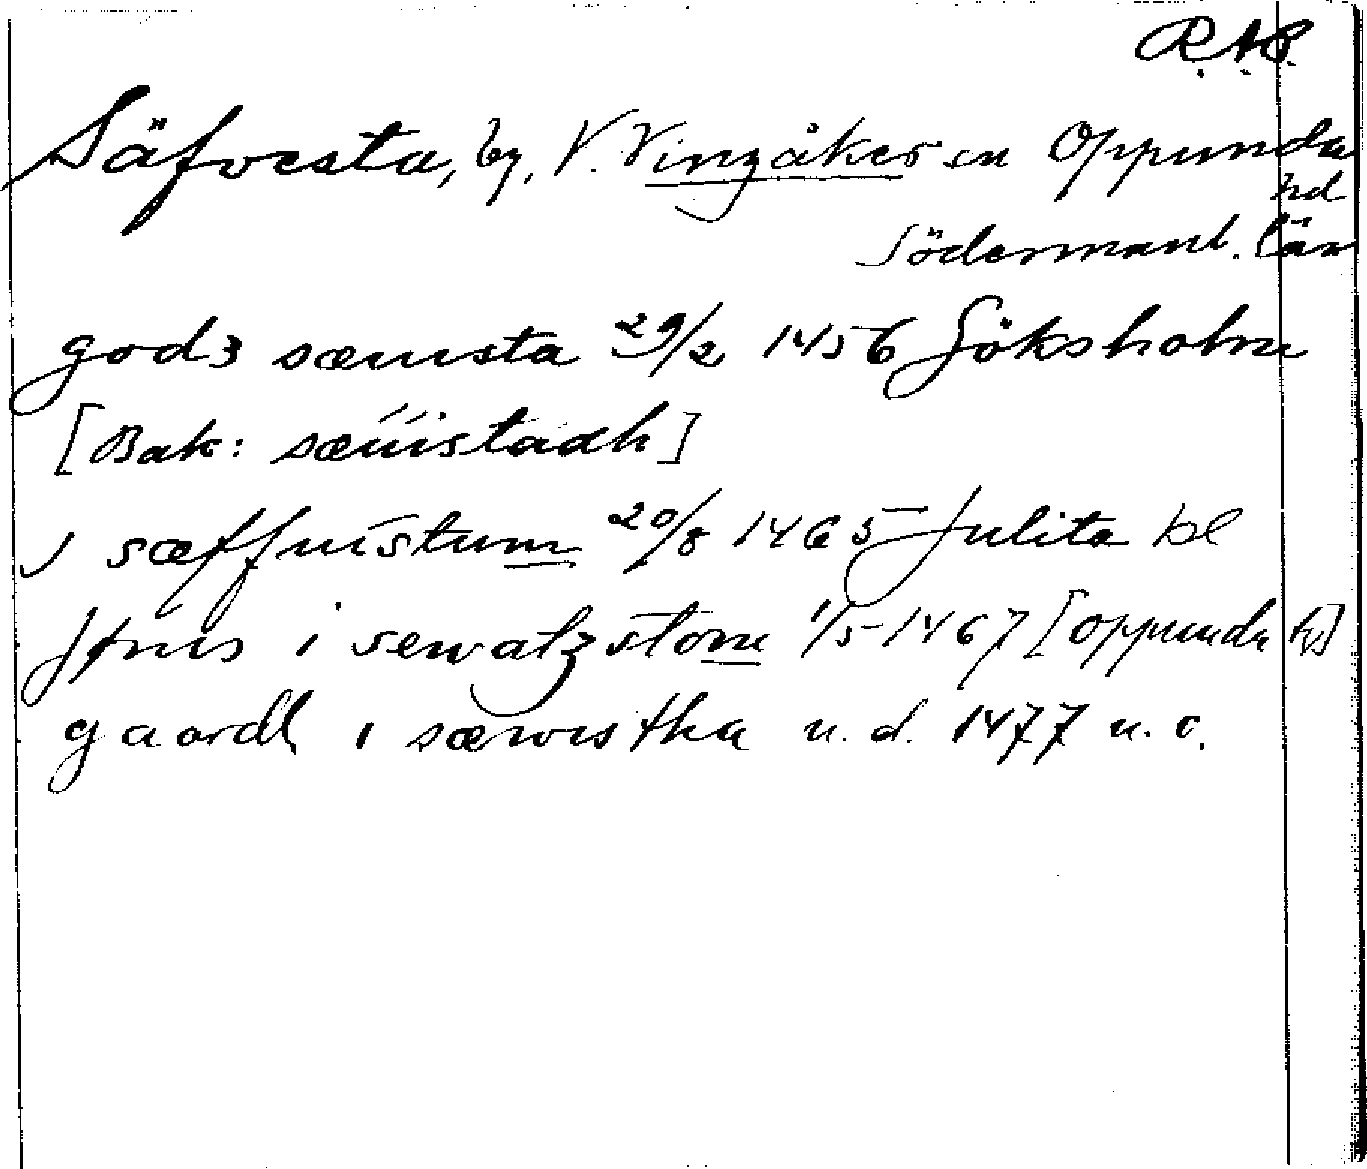 R.A.P.
Säfvesta, by, V. Vingåker sn Oppunda
hd
Södermanl. län
godz sæuista 29/2 1456 Göksholm
[Bak: sæuistadh]
j sæffuistum 20/8 1465 Julita kl
Jønis i sewatzstom 1/5 1467 [Oppunda hd]
gaardh i sæwistha u. d. 1477 u. o.